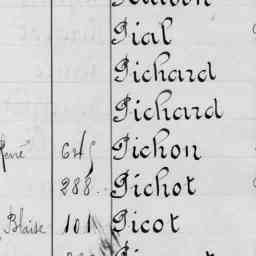 Pial
Pichard
Pichard
René 645 Pichon
288 Pichot
Blaise 101 Picot